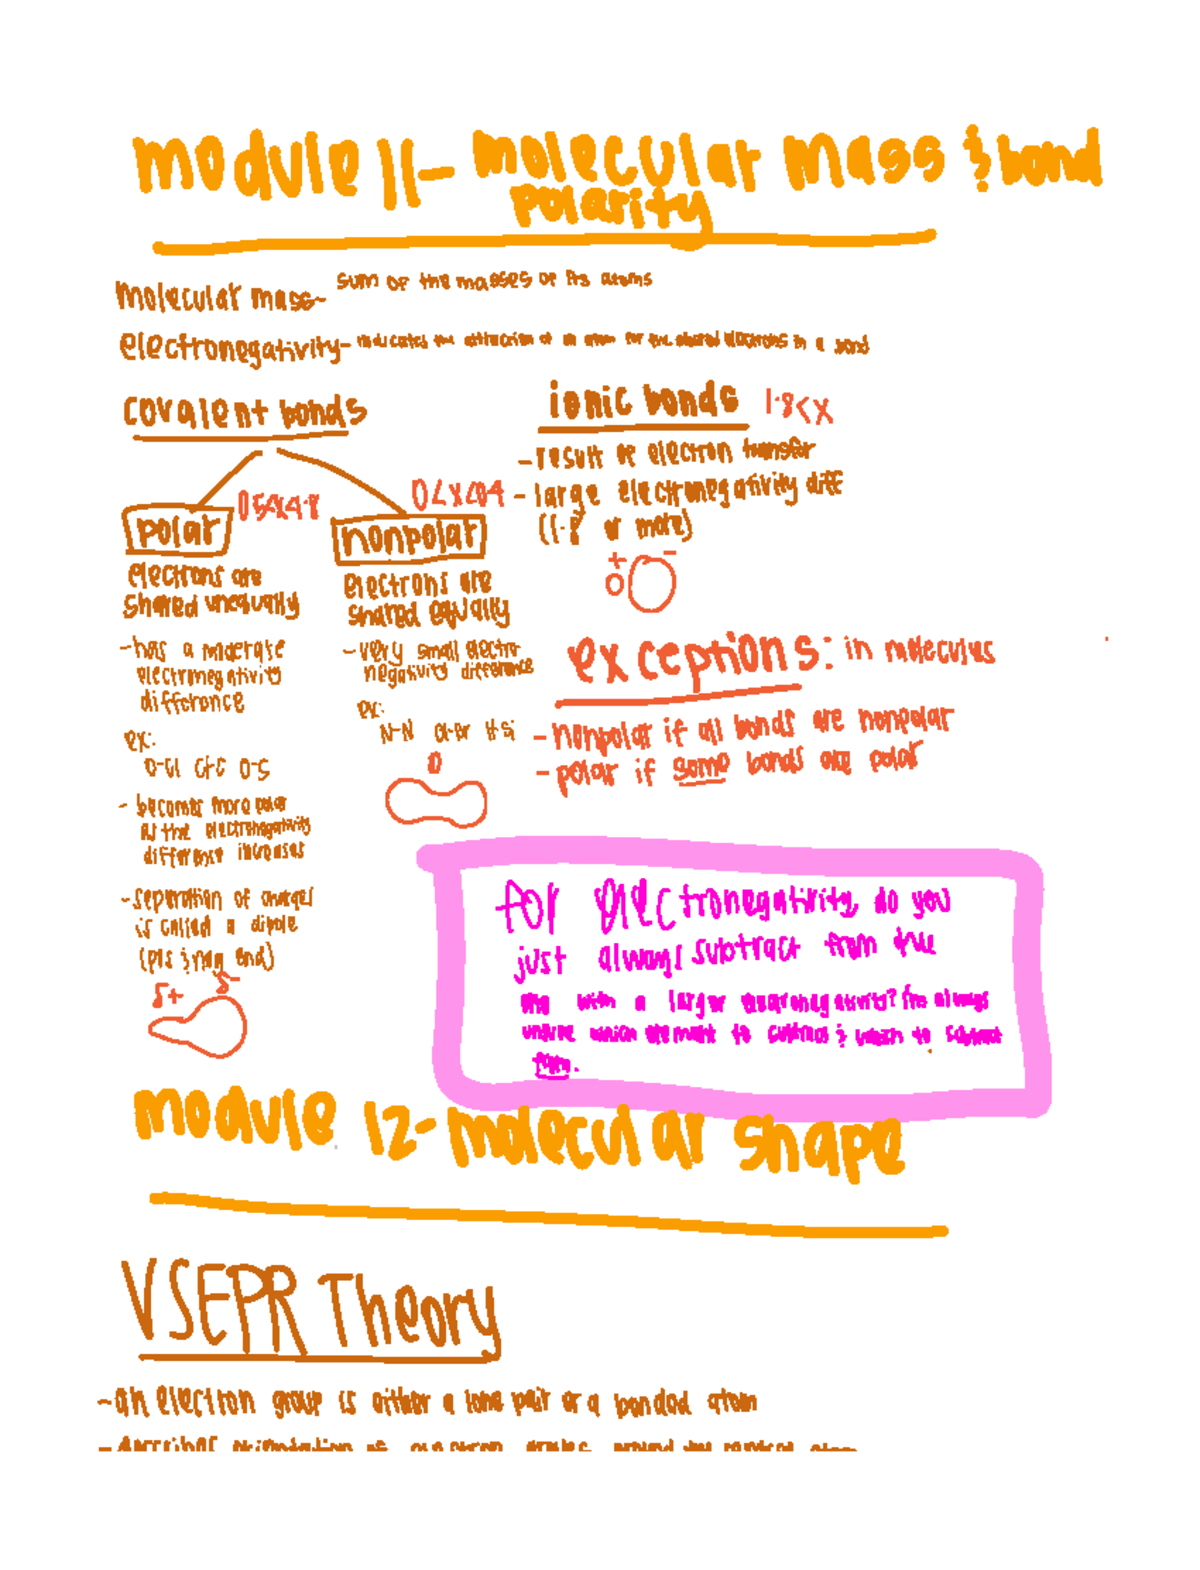 module 11- molecular mass & bond
polarity
molecular mass- sum of the masses of its atoms
electronegativity- indicates the attraction of an atom for the shared electrons in a bond
covalent bonds
polar
0.5<x<1.8
electrons are
shared unequally
-has a moderate
electronegativity
difference
ex:
O-Cl O-S
- becomes more polar
as the electronegativity
difference increases
-separation of charges
is called a dipole
(pos & neg end)
δ+ δ-
nonpolar
0<x<0.4
electrons are
shared equally
-very small electro-
negativity difference
ex:
N-N Cl-Br H-Si
0
ionic bonds 1.8<x
-result of electron transfer
-large electronegativity diff
(1.8 or more)
+ -
exceptions: in molecules
-nonpolar if all bonds are nonpolar
-polar if some bonds are polar
for electronegativity, do you
just always subtract from the
one with a larger electronegativity? I'm always
unsure which element to subtract & which to subtract
from.
module 12- molecular shape
VSEPR Theory
-an electron group is either a lone pair or a bonded atom
-describes orientation of electron around the central atom